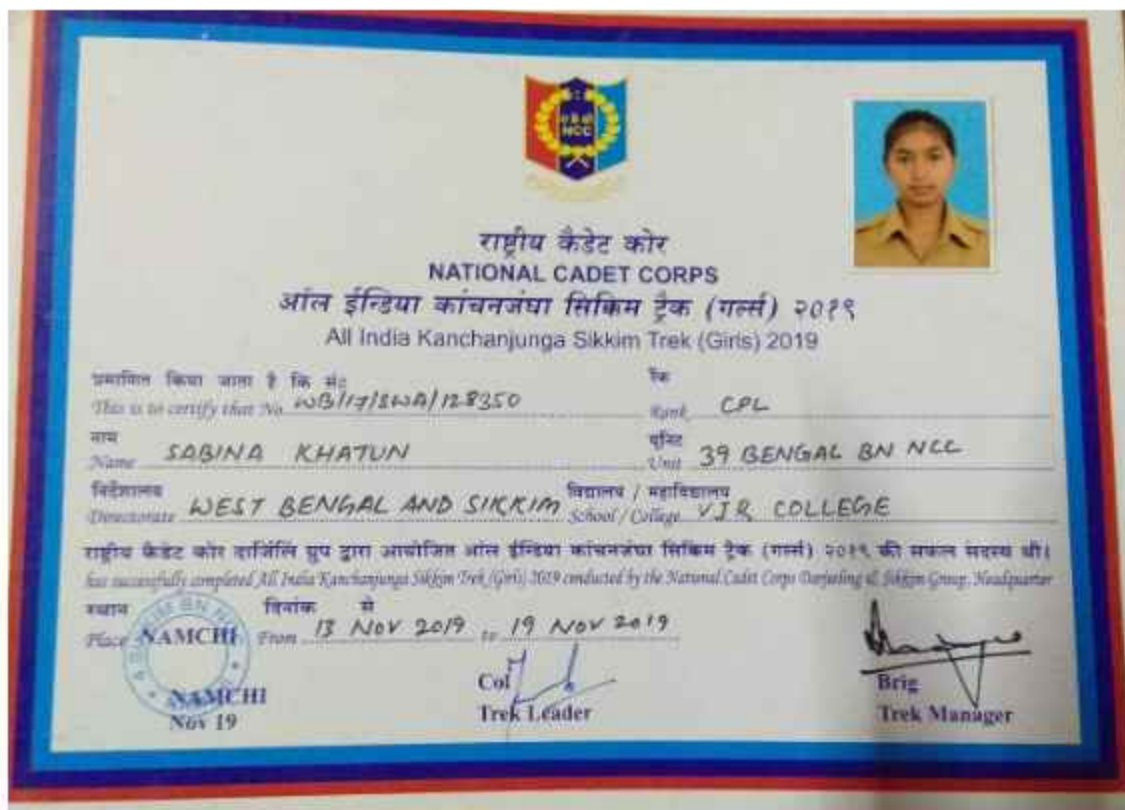 NCC
राष्ट्रीय कैडेट कोर
NATIONAL CADET CORPS
ऑल ईन्डिया कांचनजंघा सिक्किम ट्रैक (गर्ल्स) २०१९
All India Kanchanjunga Sikkim Trek (Girls) 2019
प्रमाणित किया जाता है कि सं० रैंक
This is to certify that No WB/17/SWA/128350 Rank CPL
नाम यूनिट
Name SABINA KHATUN Unit 39 BENGAL BN NCC
निर्देशालय विद्यालय / महाविद्यालय
Directorate WEST BENGAL AND SIKKIM School / College VJR COLLEGE
राष्ट्रीय कैडेट कोर दार्जिलिं ग्रुप द्वारा आयोजित ऑल ईन्डिया कांचनजंघा सिक्किम ट्रैक (गर्ल्स) २०१९ की सफल सदस्य थी।
has successfully completed All India Kanchanjunga Sikkim Trek (Girls) 2019 conducted by the National Cadet Corps Darjeeling & Sikkim Group, Headquarter
स्थान दिनांक से
Place NAMCHI From 13 NOV 2019 to 19 NOV 2019
NAMCHI Col Brig
Nov 19 Trek Leader Trek Manager